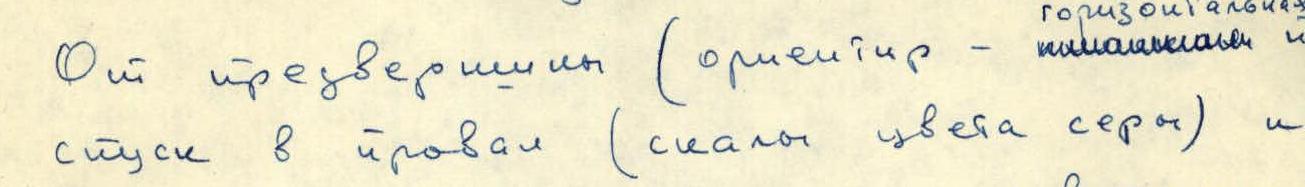 горизонтальная
От предвершины (ориентир –
спуск в провал (скалы цвета серы) и